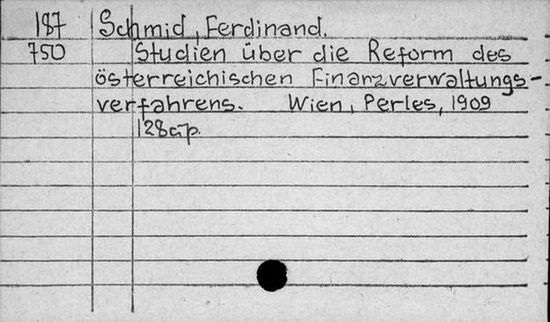 187 Schmid, Ferdinand.
750 Studien über die Reform des
österreichischen Finanzverwaltungs-
verfahrens. Wien, Perles, 1909